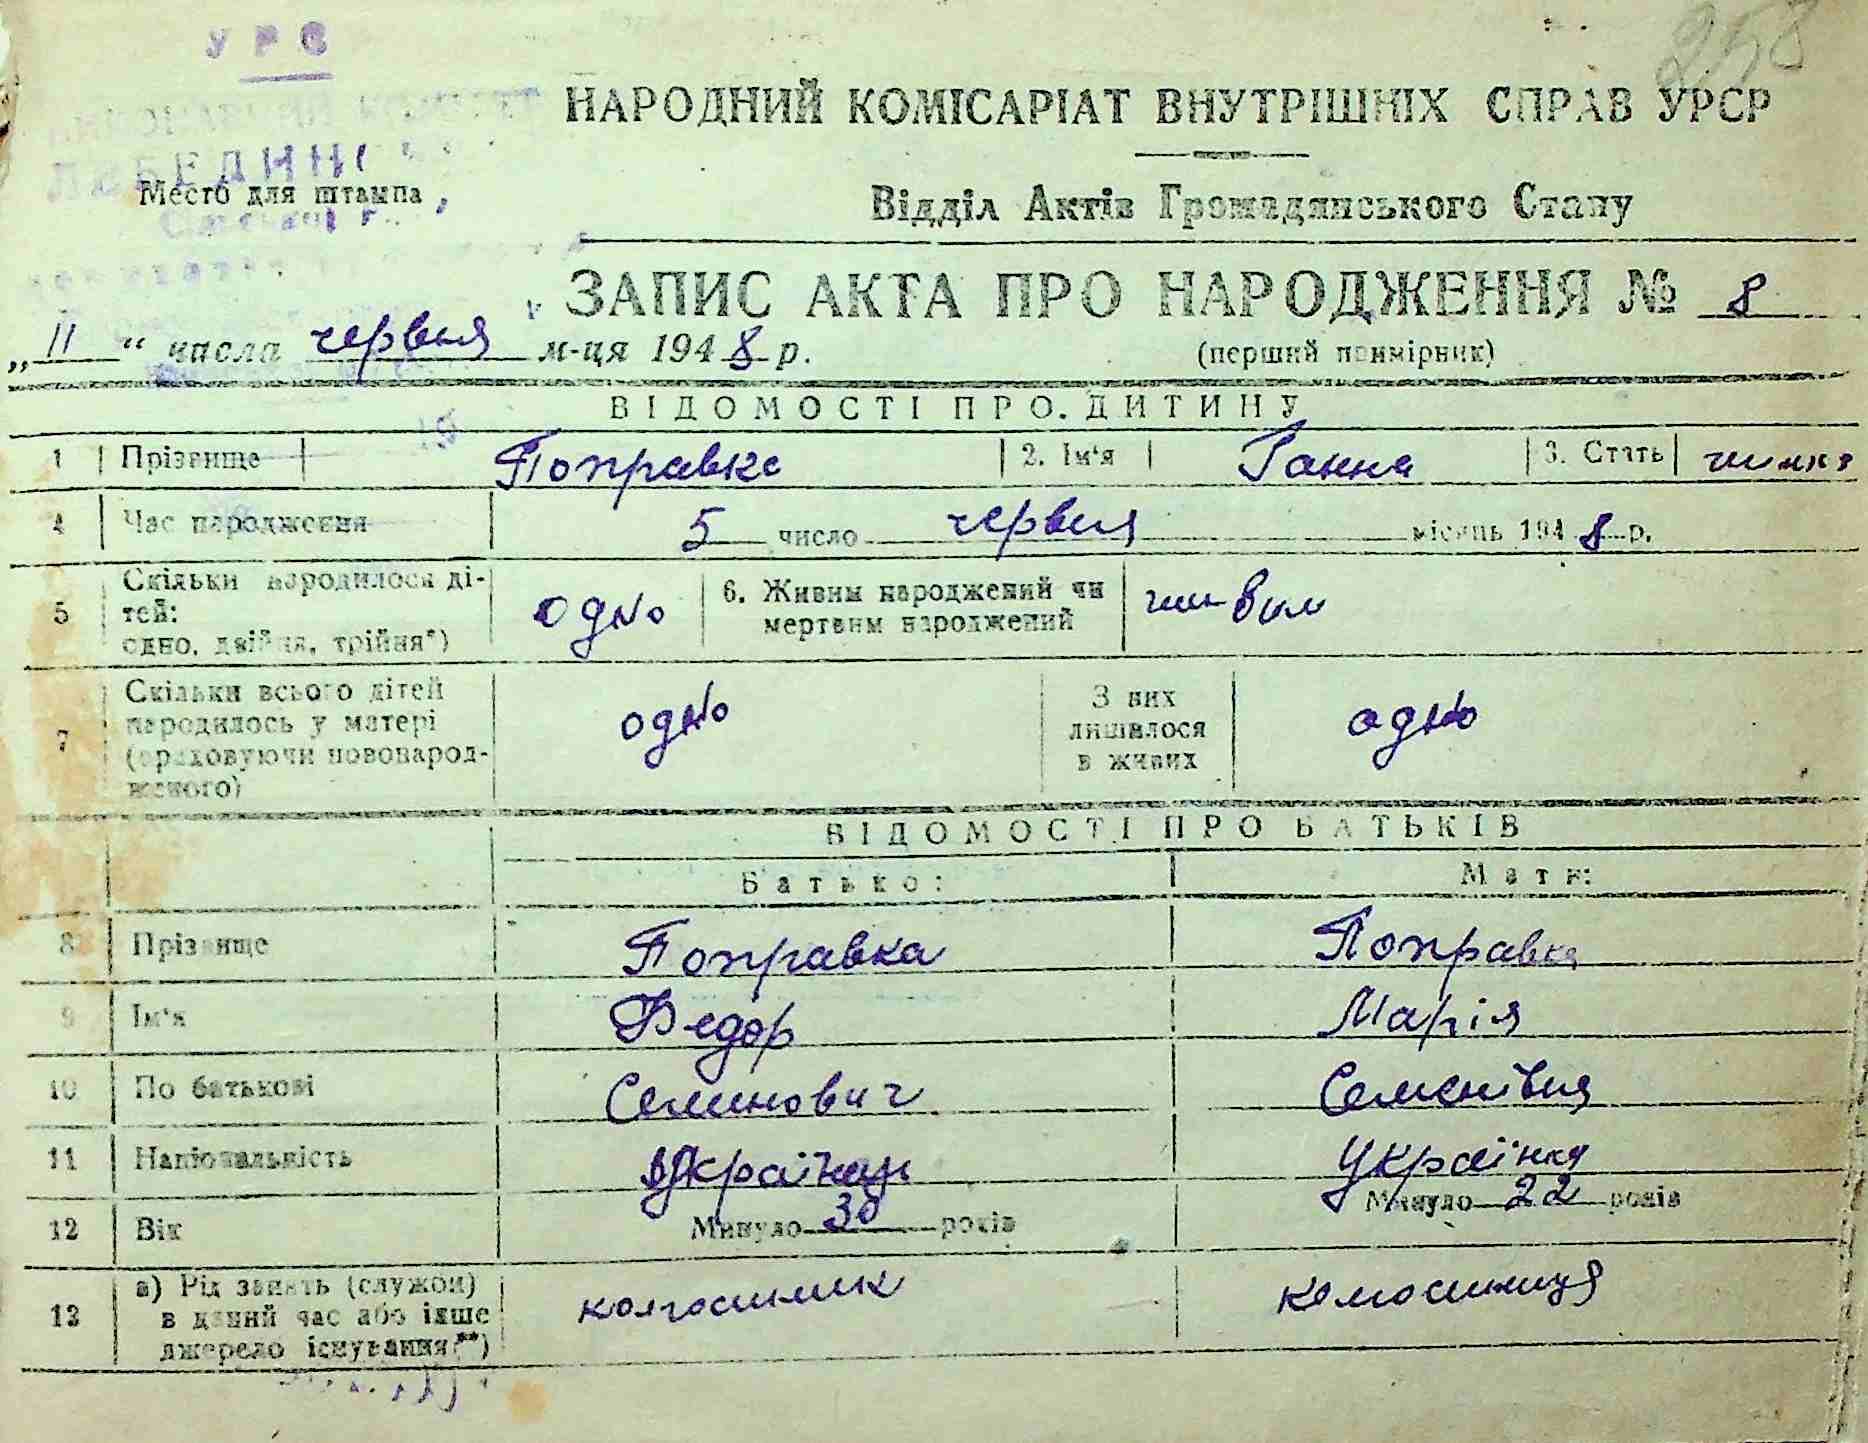 258
УРС
НАРОДНИЙ КОМІСАРІАТ ВНУТРІШНІХ СПРАВ УРСР
ЛЕБЕДИН
Место для штампа
Відділ Актів Громадянського Стану
ЗАПИС АКТА ПРО НАРОДЖЕННЯ № 8
„11“ числа червня м-ця 1948 р.
(перший примірник)
ВІДОМОСТІ ПРО ДИТИНУ
1 Прізвище Поправка 2. Ім'я Ганна 3. Стать
4 Час народження 5 число червня місяць 1948 р.
5 Скільки народилося ді-
тей:
одно, двійня, трійня*) одно 6. Живим народжений чи
мертвим народжений живим
7 Скільки всього дітей
народилось у матері
(враховуючи новонарод-
женого) одно З них
лишилося
в живих одно
ВІДОМОСТІ ПРО БАТЬКІВ
Батько: Мати:
8 Прізвище Поправка Поправка
9 Ім'я Федор Марія
10 По батькові Семинович Семенівня
11 Національність Українец Українка
12 Вік Минуло 30 років Минуло 22 років
13 а) Рід занять (служби)
в даний час або інше
джерело існування**) колгоспник колгоспниця